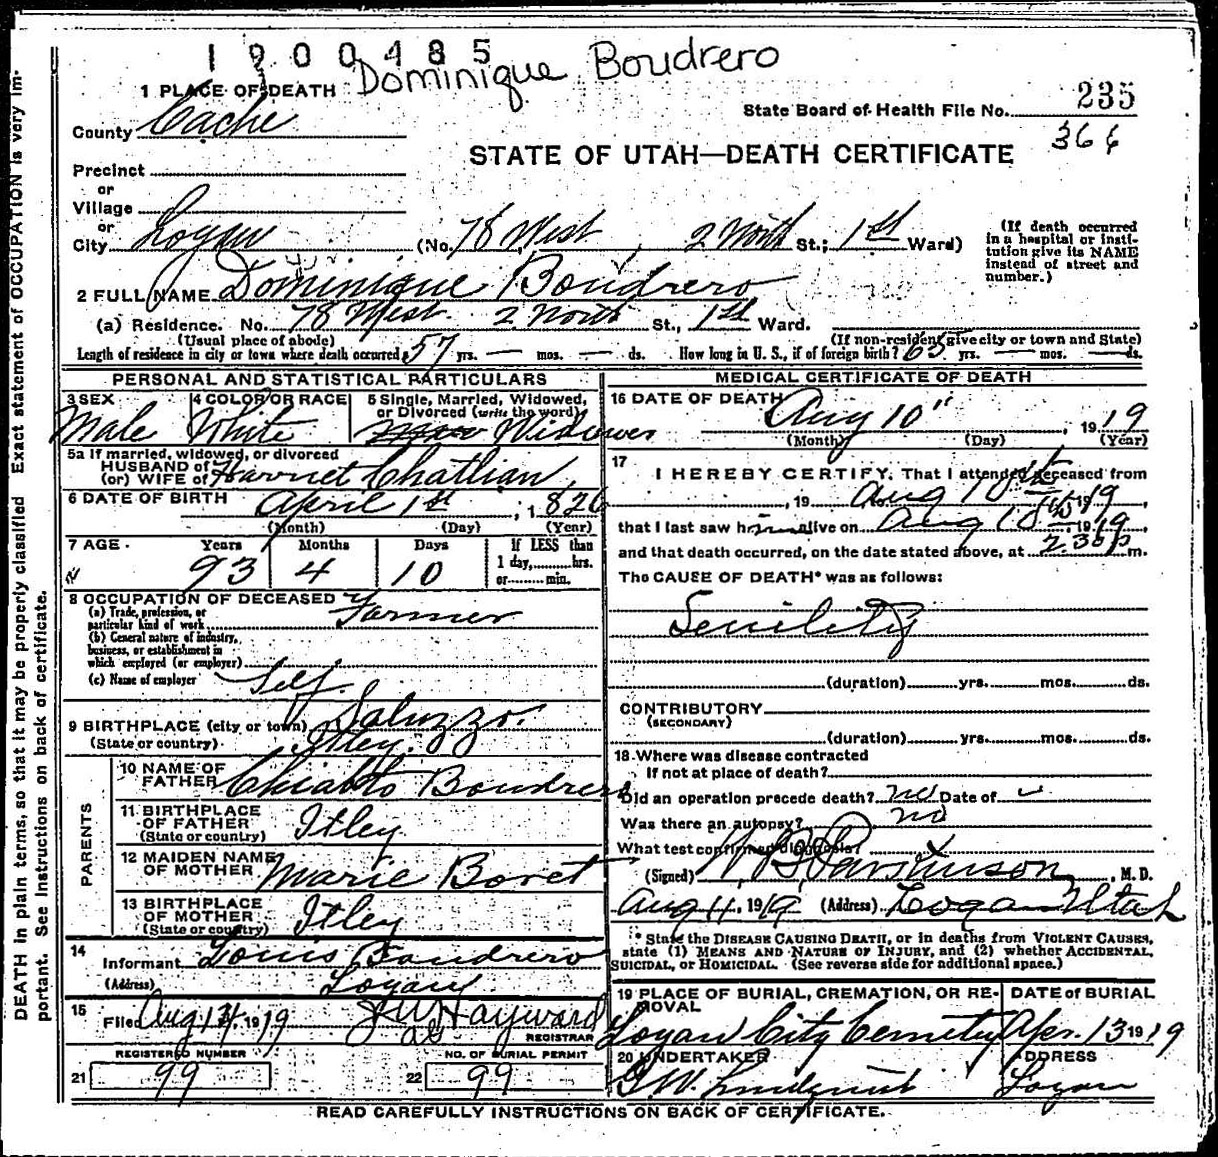 1900485
Dominique Boudrero
1 PLACE OF DEATH
State Board of Health File No. 235
366
County Cache
STATE OF UTAH—DEATH CERTIFICATE
Precinct
or
Village
or
City Logan (No. 78 West, 2 North St.; 1st Ward)
(If death occurred in a hospital or insti-
tution give its NAME
instead of street and
number.)
2 FULL NAME Dominique Boudrero
(a) Residence. No. 78 West 2 North St., 1st Ward.
(Usual place of abode)
(If non-resident give city or town and State)
Length of residence in city or town where death occurred 57 yrs. — mos. — ds. How long in U. S., if of foreign birth? 65 yrs. — mos. — ds.
PERSONAL AND STATISTICAL PARTICULARS
3 SEX
Male
4 COLOR OR RACE
White
5 Single, Married, Widowed,
or Divorced (write the word)
Widower
5a If married, widowed, or divorced
HUSBAND of
(or) WIFE of Harriet Chatlian
6 DATE OF BIRTH April 1st, 1826
(Month) (Day) (Year)
7 AGE Years Months Days If LESS than
1 day,.......hrs.
or.......min.
93 4 10
8 OCCUPATION OF DECEASED
(a) Trade, profession, or
particular kind of work Farmer
(b) General nature of industry,
business, or establishment in
which employed (or employer)
(c) Name of employer Self.
9 BIRTHPLACE (city or town) Saluzzo.
(State or country) Itley.
PARENTS
10 NAME OF
FATHER Boudrero
11 BIRTHPLACE
OF FATHER
(State or country) Itley
12 MAIDEN NAME
OF MOTHER Marie Boret
13 BIRTHPLACE
OF MOTHER
(State or country) Itley
14 Informant Louis Boudrero
(Address) Logan
15 Filed Aug 1919 J W Hayward
REGISTRAR
REGISTERED NUMBER
21 99
NO. OF BURIAL PERMIT
22 99
MEDICAL CERTIFICATE OF DEATH
16 DATE OF DEATH
Aug 10", 1919
(Month) (Day) (Year)
17
I HEREBY CERTIFY, That I attended deceased from
, 19 Aug 10th 1919
that I last saw him alive on Aug 10th, 1919,
and that death occurred, on the date stated above, at 2.30 p m.
The CAUSE OF DEATH* was as follows:
Senility
(duration) yrs. mos. ds.
CONTRIBUTORY
(SECONDARY)
(duration) yrs. mos. ds.
18 Where was disease contracted
If not at place of death?
Did an operation precede death? no Date of
Was there an autopsy? no
What test confirmed diagnosis?
(Signed) W B Parkinson, M. D.
Aug 11, 1919 (Address) Logan Utah
* State the DISEASE CAUSING DEATH, or in deaths from VIOLENT CAUSES,
state (1) MEANS AND NATURE OF INJURY, and (2) whether ACCIDENTAL,
SUICIDAL, or HOMICIDAL. (See reverse side for additional space.)
19 PLACE OF BURIAL, CREMATION, OR RE-
MOVAL
Logan City Cemetery
DATE of BURIAL
Apr. 13 1919
20 UNDERTAKER
G.W. Lindquist
ADDRESS
Logan
READ CAREFULLY INSTRUCTIONS ON BACK OF CERTIFICATE.
DEATH in plain terms, so that it may be properly classified Exact statement of OCCUPATION is very im-
portant. See Instructions on back of certificate.